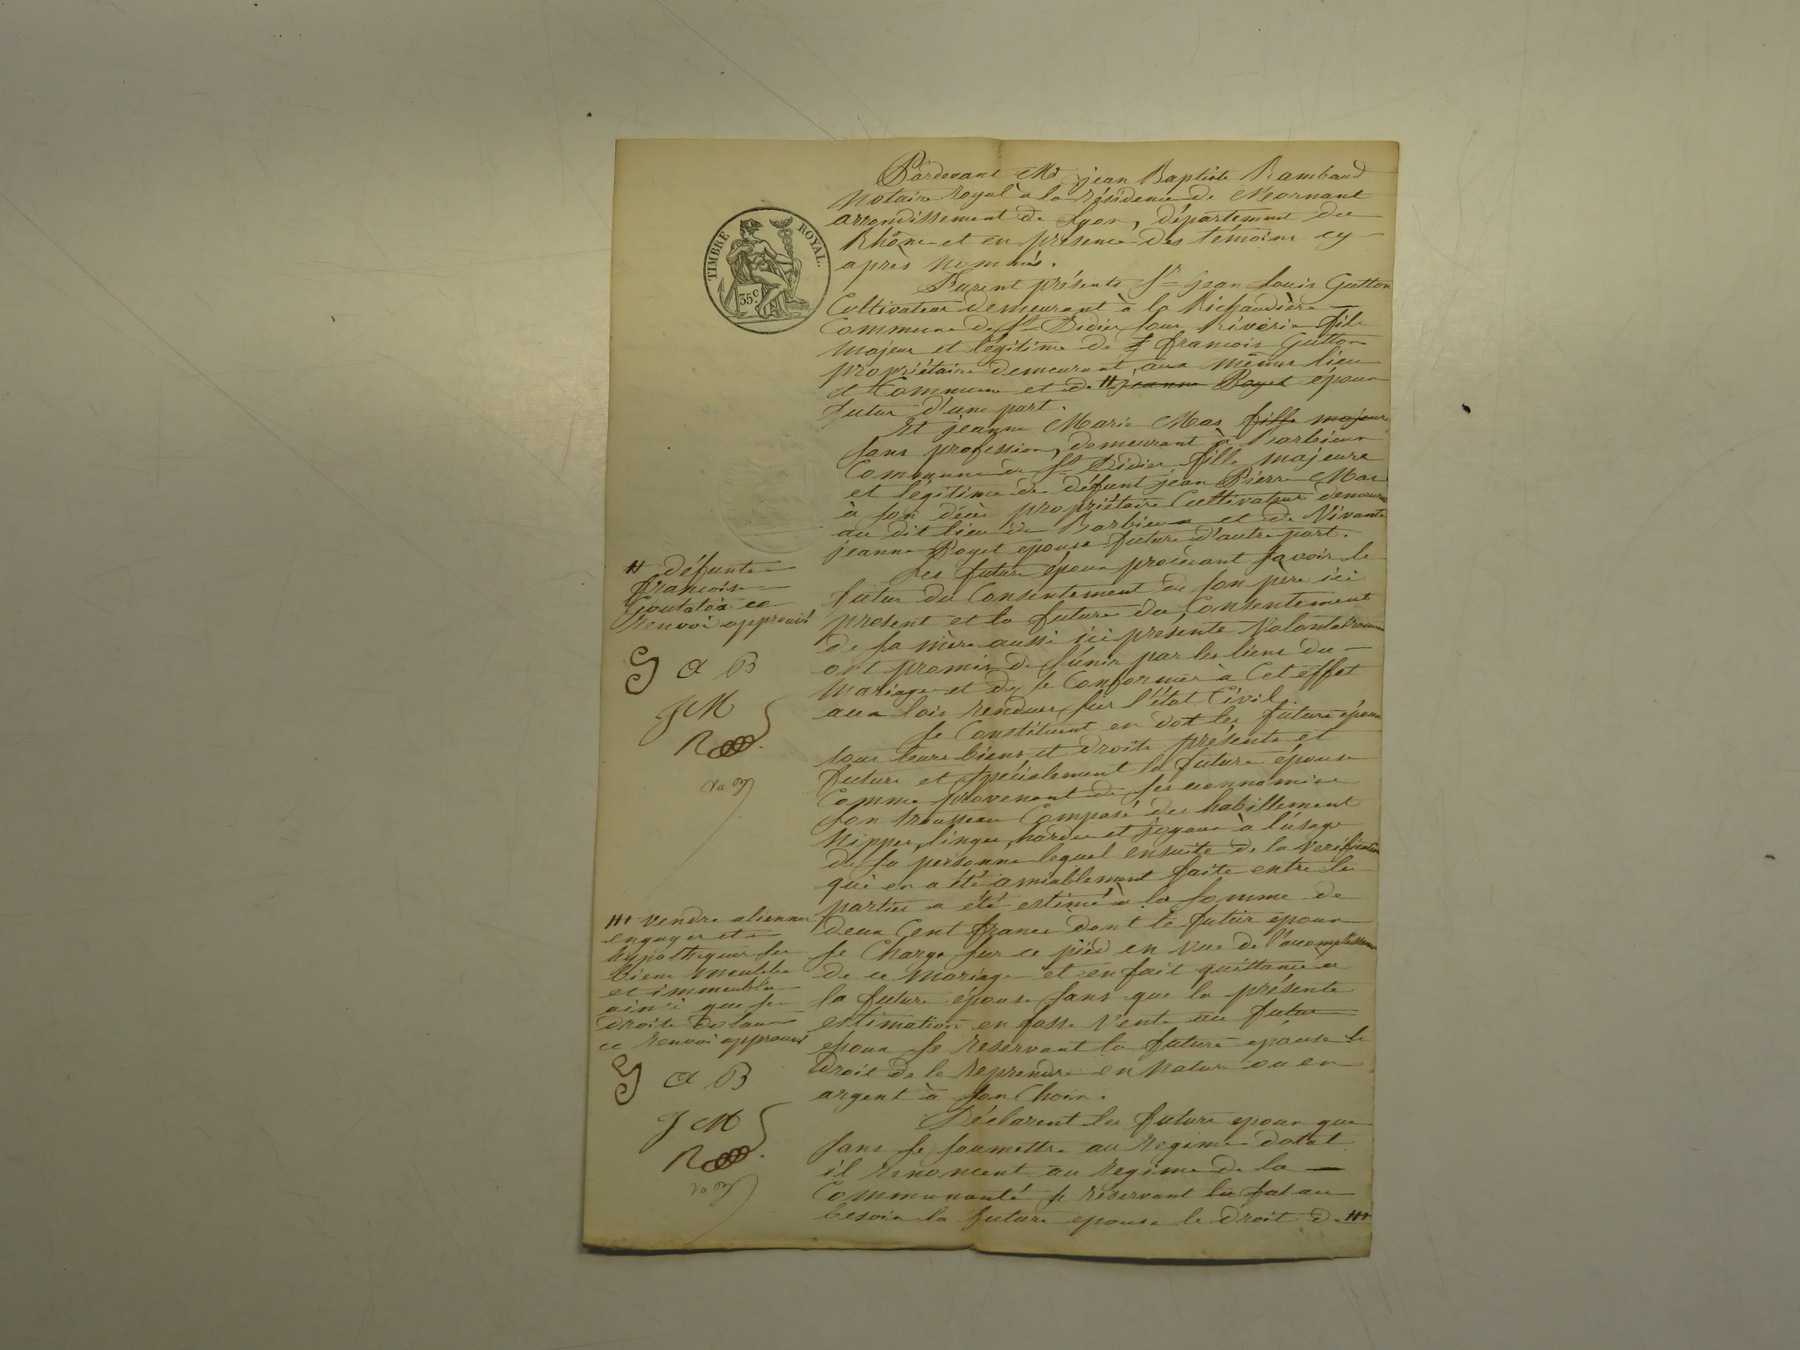 Pardevant Me jean Baptiste Rambaud
Notaire Royal à la résidence de Mornant
arrondissement de Lyon, département du
Rhône et en présence des témoins cy
après nommés.
TIMBRE ROYAL.
35c
Furent présents Sr Jean Louis Gutton
Cultivateur demeurant à la Richaudière
Commune de St Didier sous Riverie fils
majeur et légitime de françois Gutton
propriétaire demeurant aux mêmes lieu
et Commune et de # jeanne Poyet époux
futur d'une part.
Et jeanne Marie Mas fille majeure
sans profession, demeurant à Barbieux
Commune de St Didier fille majeure
et légitime de défunt jean Pierre Mas
à son décès propriétaire Cultivateur demeurant
au dit lieu de Barbieux et de Vivante
jeanne Poyet epouse future d'autre part.
Les futurs époux procédant savoir le
futur du Consentement de son père ici
présent et la future du Consentement
de sa mère aussi ici présente Volontairement
ont promis de s'unir par les liens du
Mariage et de se Conformer à Cet effet
aux lois rendues sur l'état Civil.
Se Constituent en dot les futurs époux
tous leurs biens et droits présents et
futurs et spécialement la future épouse
Comme provenant de ses economies
son trousseau Composé des habillement
Nippes, linges, hardes et joyaux à l'usage
de sa personne lequel ensuite de la verification
qui en a été amiablement faite entre les
parties a été estimé à la somme de
deux Cent francs dont le futur epoux
se Charge sur ce pied en vue de l'accomplissement
de ce mariage et en fait quittance a
la future épouse sans que la présente
estimation en fasse Vente au futur
epoux se réservant la future epouse le
Droit de le reprendre en Nature ou en
argent à son Choix.
Déclarent les futurs epoux que
sans se soumettre au regime dotal
il renoncent au regime de la
Communauté se réservant au
besoin la future epouse le droit de ##
# défunte
françoise
ce
renvoi approuvé
G a B
J M
R
Vu
## vendre aliener
engager et
hypothequer ses
biens meubles
et immeubles
ainsi que ses
droits dotaux
ce renvoi approuvé
G a B
J M
R
Vu